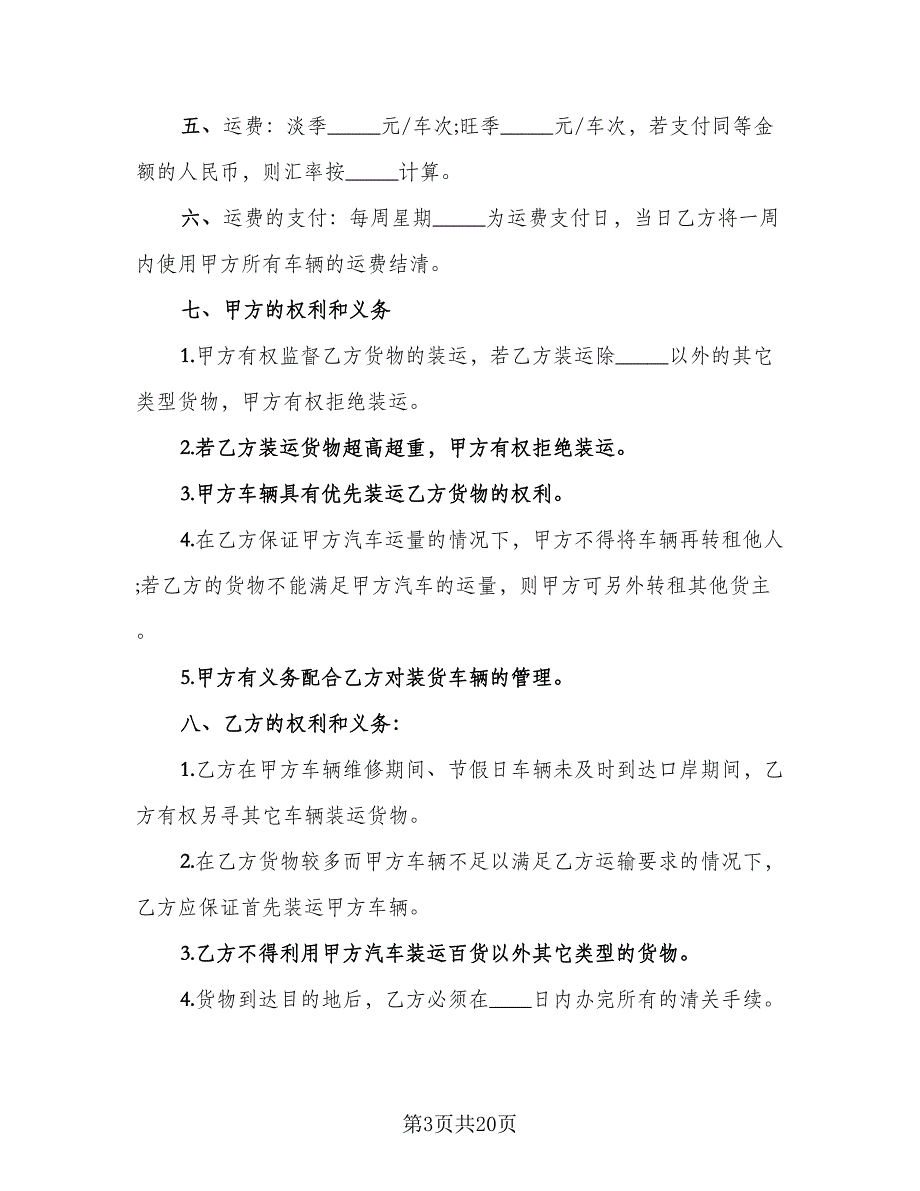 五、运费：淡季_____元/车次;旺季_____元/车次，若支付同等金
额的人民币，则汇率按_____计算。
六、运费的支付：每周星期_____为运费支付日，当日乙方将一周
内使用甲方所有车辆的运费结清。
七、甲方的权利和义务
1.甲方有权监督乙方货物的装运，若乙方装运除_____以外的其它
类型货物，甲方有权拒绝装运。
2.若乙方装运货物超高超重，甲方有权拒绝装运。
3.甲方车辆具有优先装运乙方货物的权利。
4.在乙方保证甲方汽车运量的情况下，甲方不得将车辆再转租他人
;若乙方的货物不能满足甲方汽车的运量，则甲方可另外转租其他货主
。
5.甲方有义务配合乙方对装货车辆的管理。
八、乙方的权利和义务：
1.乙方在甲方车辆维修期间、节假日车辆未及时到达口岸期间，乙
方有权另寻其它车辆装运货物。
2.在乙方货物较多而甲方车辆不足以满足乙方运输要求的情况下，
乙方应保证首先装运甲方车辆。
3.乙方不得利用甲方汽车装运百货以外其它类型的货物。
4.货物到达目的地后，乙方必须在____日内办完所有的清关手续。
第3页共20页